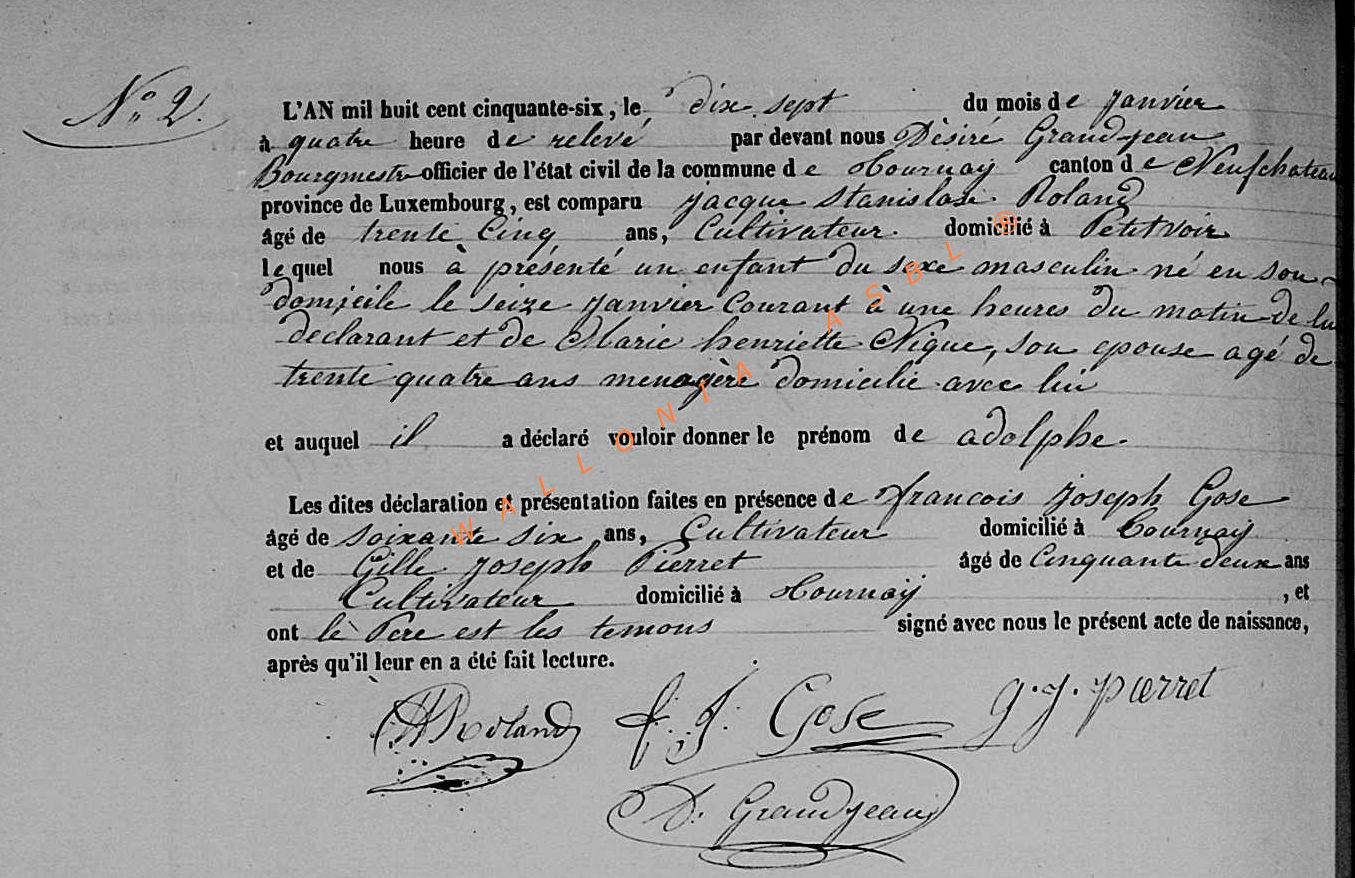 N° 2.
L'AN mil huit cent cinquante-six, le dix sept du mois de janvier
à quatre heure de relevé par devant nous Dèsiré Grandjean
Bourgmestre officier de l'état civil de la commune de Tournay canton de Neufchateau
province de Luxembourg, est comparu jacque Stanislase Roland
âgé de trente Cinq ans, Cultivateur. domicilié à Petitvoir
lequel nous à présenté un enfant du sexe masculin né en son
domicile le seize janvier Courant à une heures du matin de lui
declarant et de Marie henriette Nique, son epouse agé de
trente quatre ans menagère domicilie avec lui
et auquel il a déclaré vouloir donner le prénom de adolphe.
Les dites déclaration et présentation faites en présence de francois joseph Gose
âgé de soixante six ans, Cultivateur domicilié à Tournay
et de Gille joseph Pierret âgé de Cinquante deux ans
Cultivateur domicilié à Tournay, et
ont lè Pere est les temons signé avec nous le présent acte de naissance,
après qu'il leur en a été fait lecture.
Roland f. J. Gose g. J. pierret
D. Grandjean
WALLONIA ASBL ®